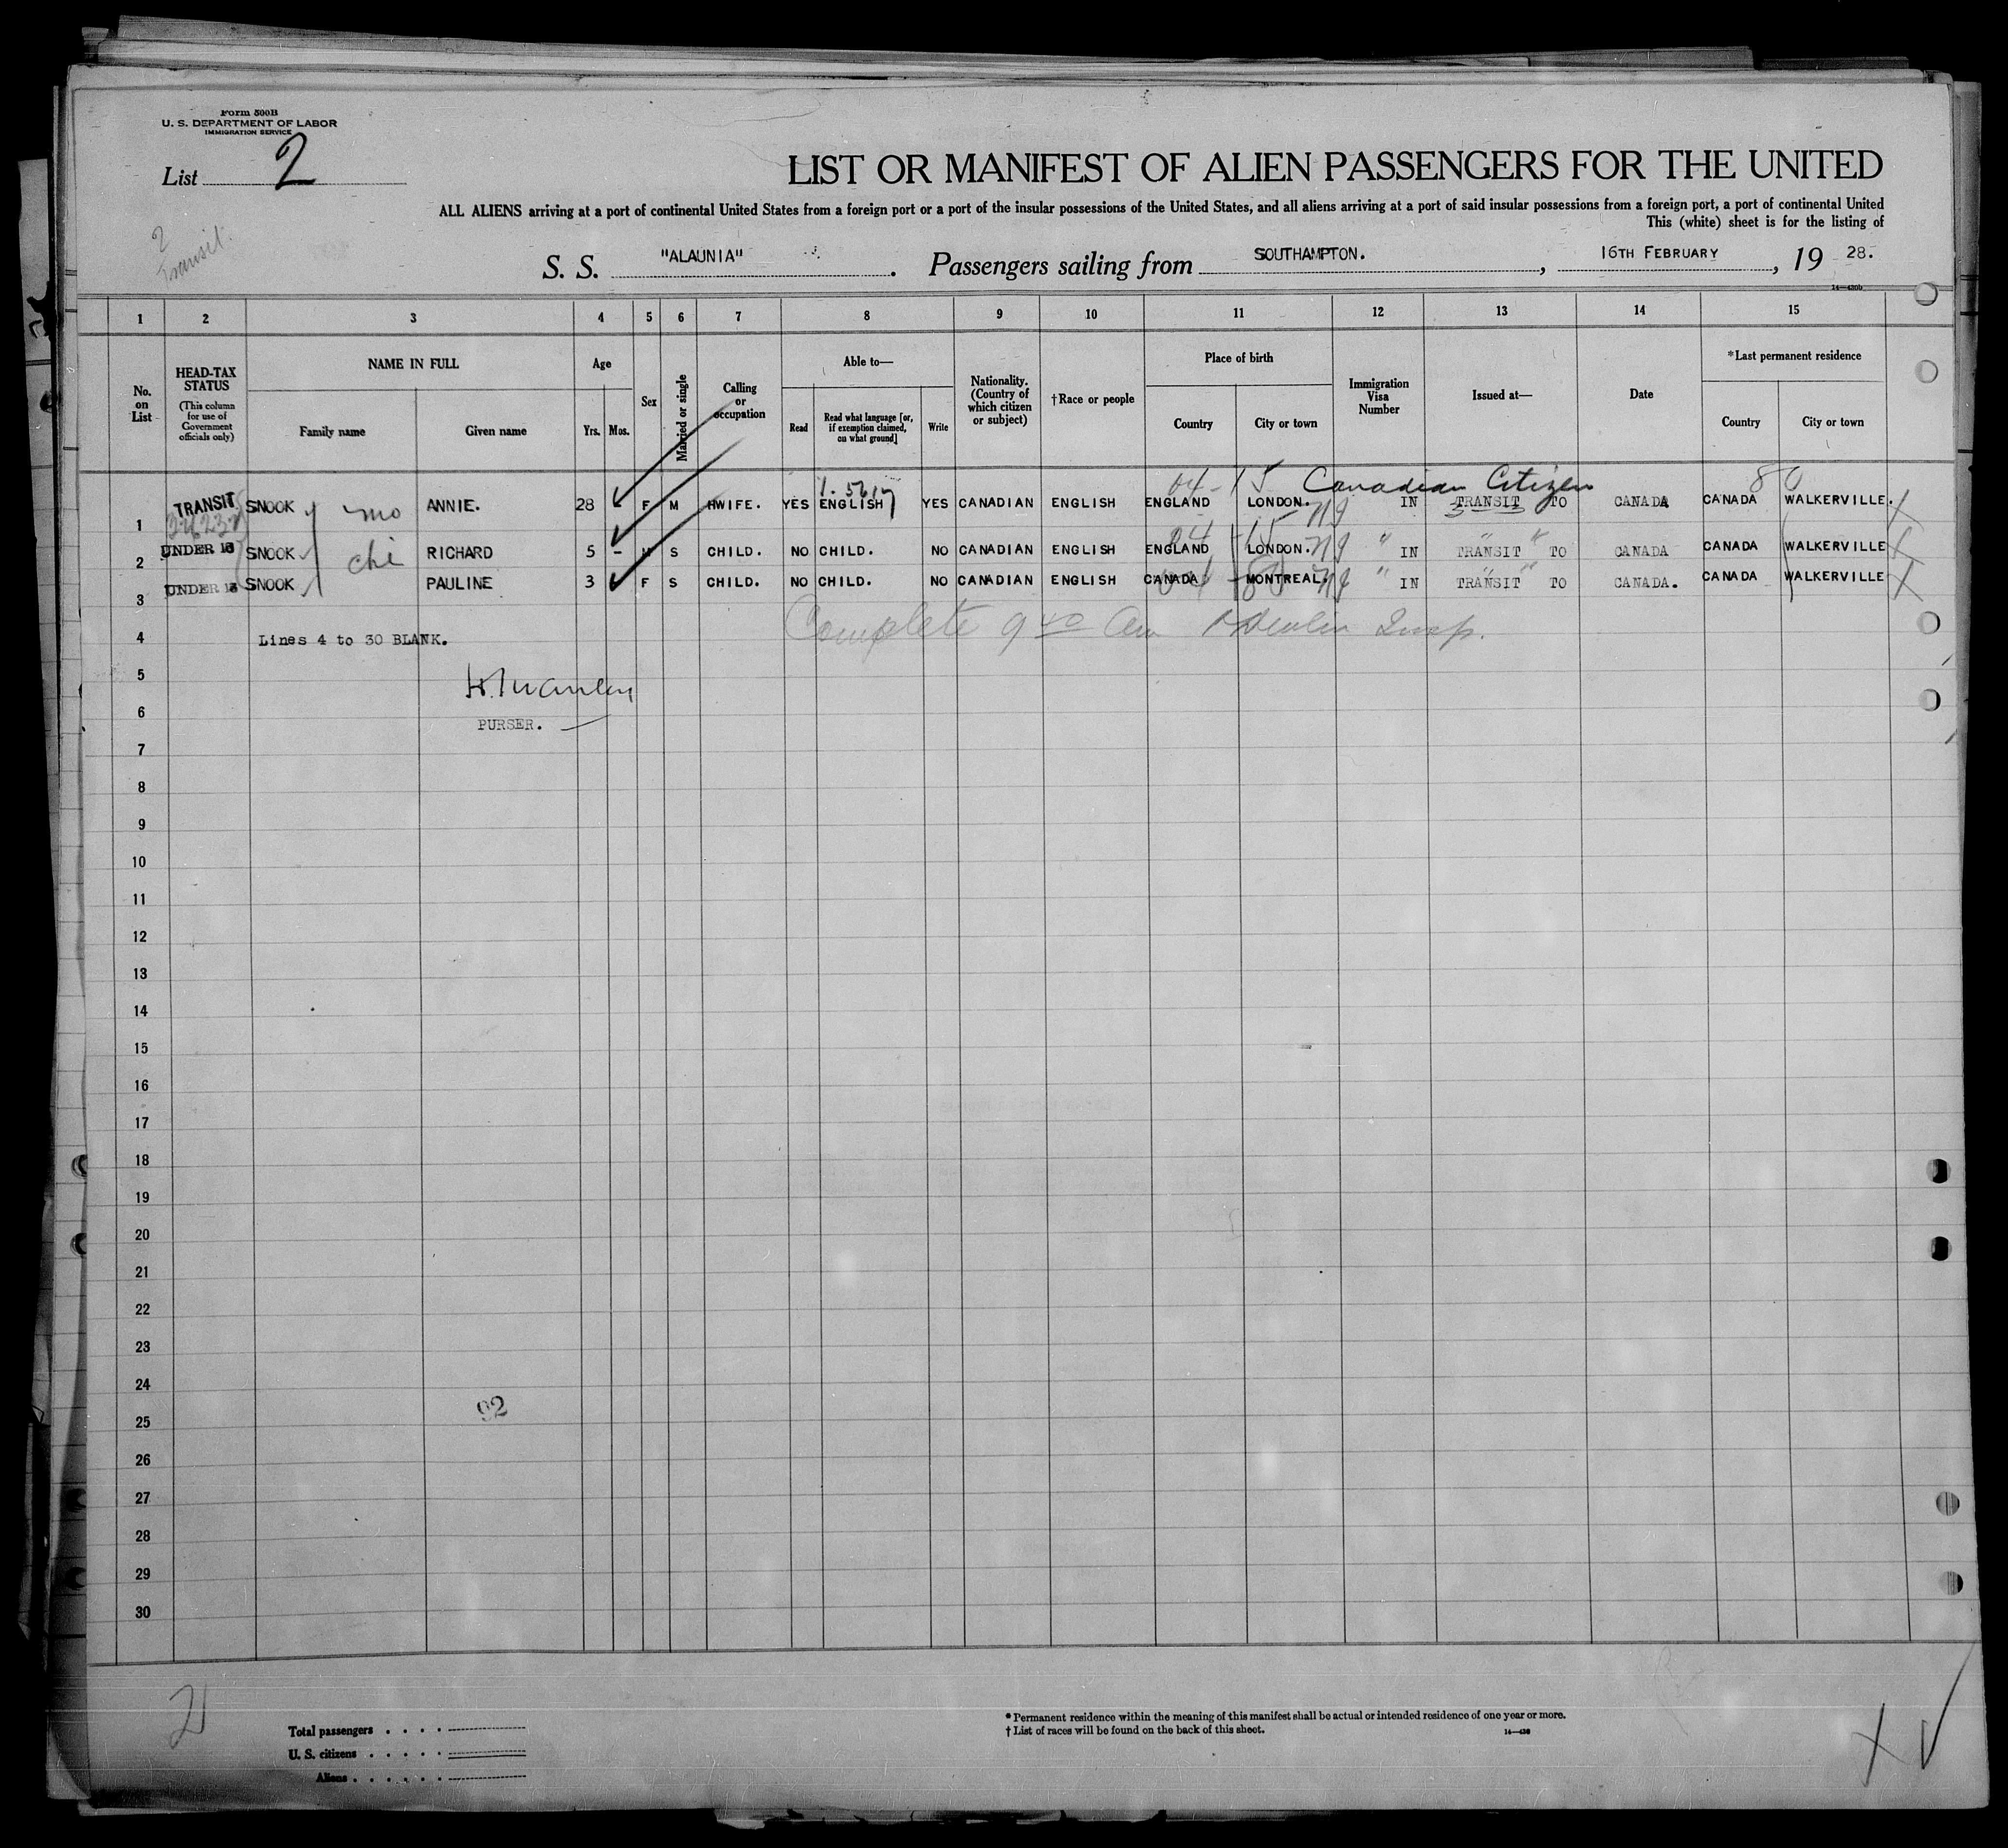 Form 500B
U. S. DEPARTMENT OF LABOR
IMMIGRATION SERVICE
List 2
2
Transit.
LIST OR MANIFEST OF ALIEN PASSENGERS FOR THE UNITED
ALL ALIENS arriving at a port of continental United States from a foreign port or a port of the insular possessions of the United States, and all aliens arriving at a port of said insular possessions from a foreign port, a port of continental United
This (white) sheet is for the listing of
S. S. "ALAUNIA". Passengers sailing from SOUTHAMPTON., 16TH FEBRUARY, 19 28.
1 2 3 4 5 6 7 8 9 10 11 12 13 14 15
No. on List
HEAD-TAX STATUS (This column for use of Government officials only)
NAME IN FULL
Family name Given name
Age
Yrs. Mos.
Sex
Married or single
Calling or occupation
Able to—
Read Read what language [or, if exemption claimed, on what ground] Write
Nationality. (Country of which citizen or subject)
†Race or people
Place of birth
Country City or town
Immigration Visa Number
Issued at—
Date
*Last permanent residence
Country City or town
04-15 Canadian Citizen 80
1 TRANSIT SNOOK mo ANNIE. 28 F M HWIFE. YES ENGLISH YES CANADIAN ENGLISH ENGLAND LONDON. IN TRANSIT TO CANADA CANADA WALKERVILLE.
2 UNDER 16 SNOOK chi RICHARD 5 - S CHILD. NO CHILD. NO CANADIAN ENGLISH ENGLAND LONDON. " IN TRANSIT " TO CANADA CANADA WALKERVILLE
3 UNDER 16 SNOOK PAULINE 3 F S CHILD. NO CHILD. NO CANADIAN ENGLISH CANADA MONTREAL. " IN TRANSIT " TO CANADA. CANADA WALKERVILLE
Complete Insp.
4 Lines 4 to 30 BLANK.
5
6 PURSER.
7
8
9
10
11
12
13
14
15
16
17
18
19
20
21
22
23
24
92
25
26
27
28
29
30
Total passengers . . . .
U. S. citizens . . . . .
Aliens . . . . . .
* Permanent residence within the meaning of this manifest shall be actual or intended residence of one year or more.
† List of races will be found on the back of this sheet.